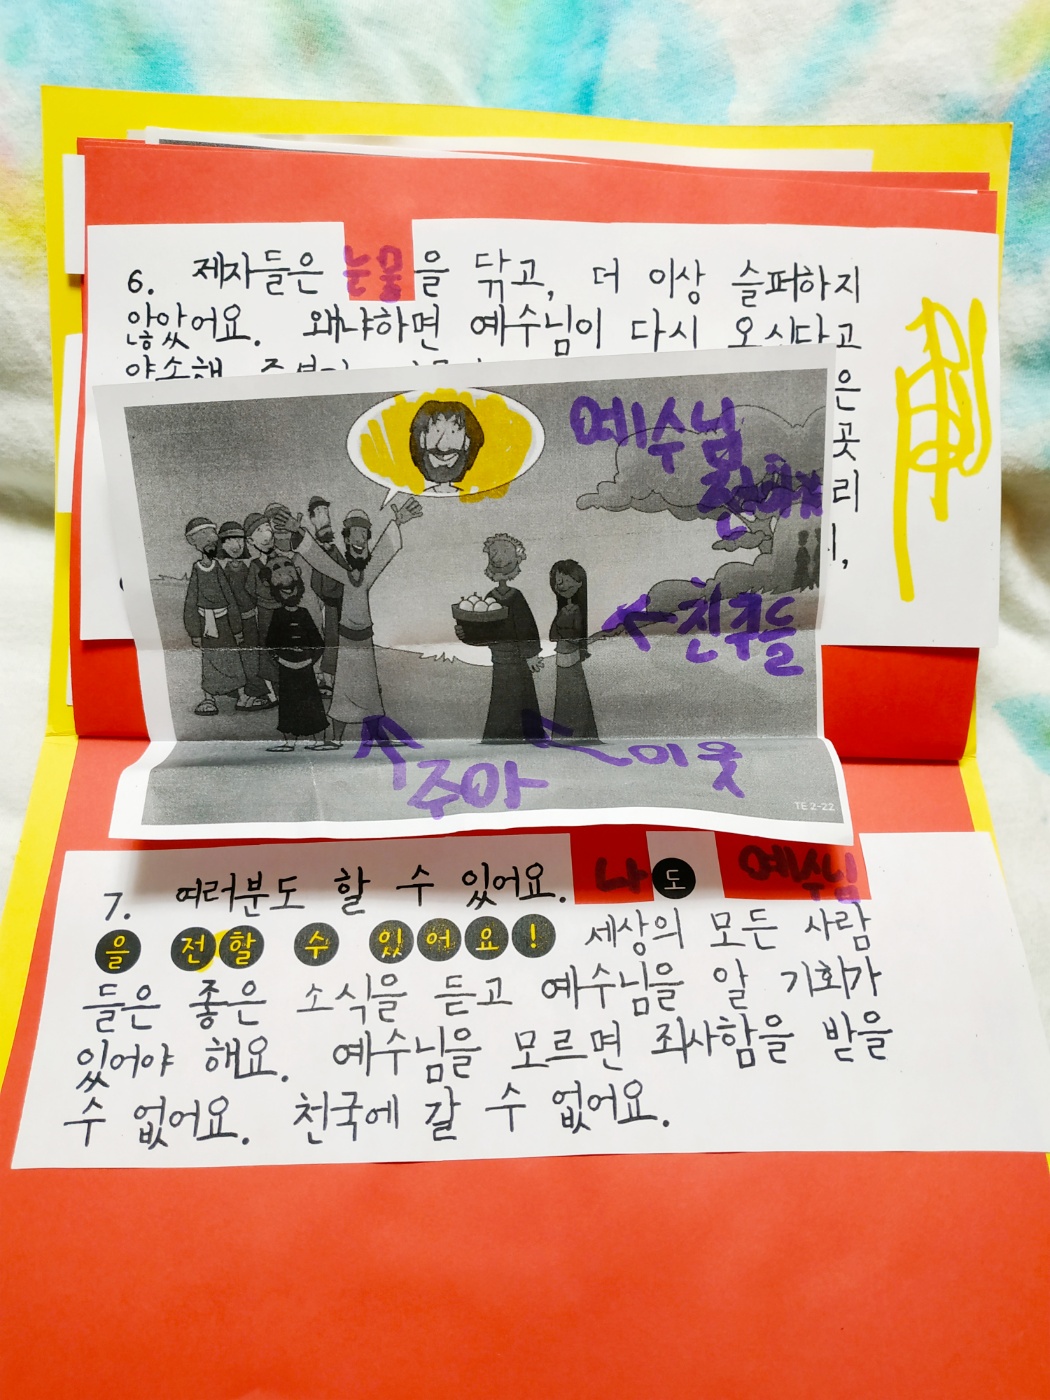 6. 제자들은 눈물을 닦고, 더 이상 슬퍼하지
않았어요. 왜냐하면 예수님이 다시 오신다고
은
곳
리
예수님
친구들
이웃
주아
TE 2-22
7. 여러분도 할 수 있어요. 나도 예수님
을 전할 수 있어요! 세상의 모든 사람
들은 좋은 소식을 듣고 예수님을 알 기회가
있어야 해요. 예수님을 모르면 죄사함을 받을
수 없어요. 천국에 갈 수 없어요.